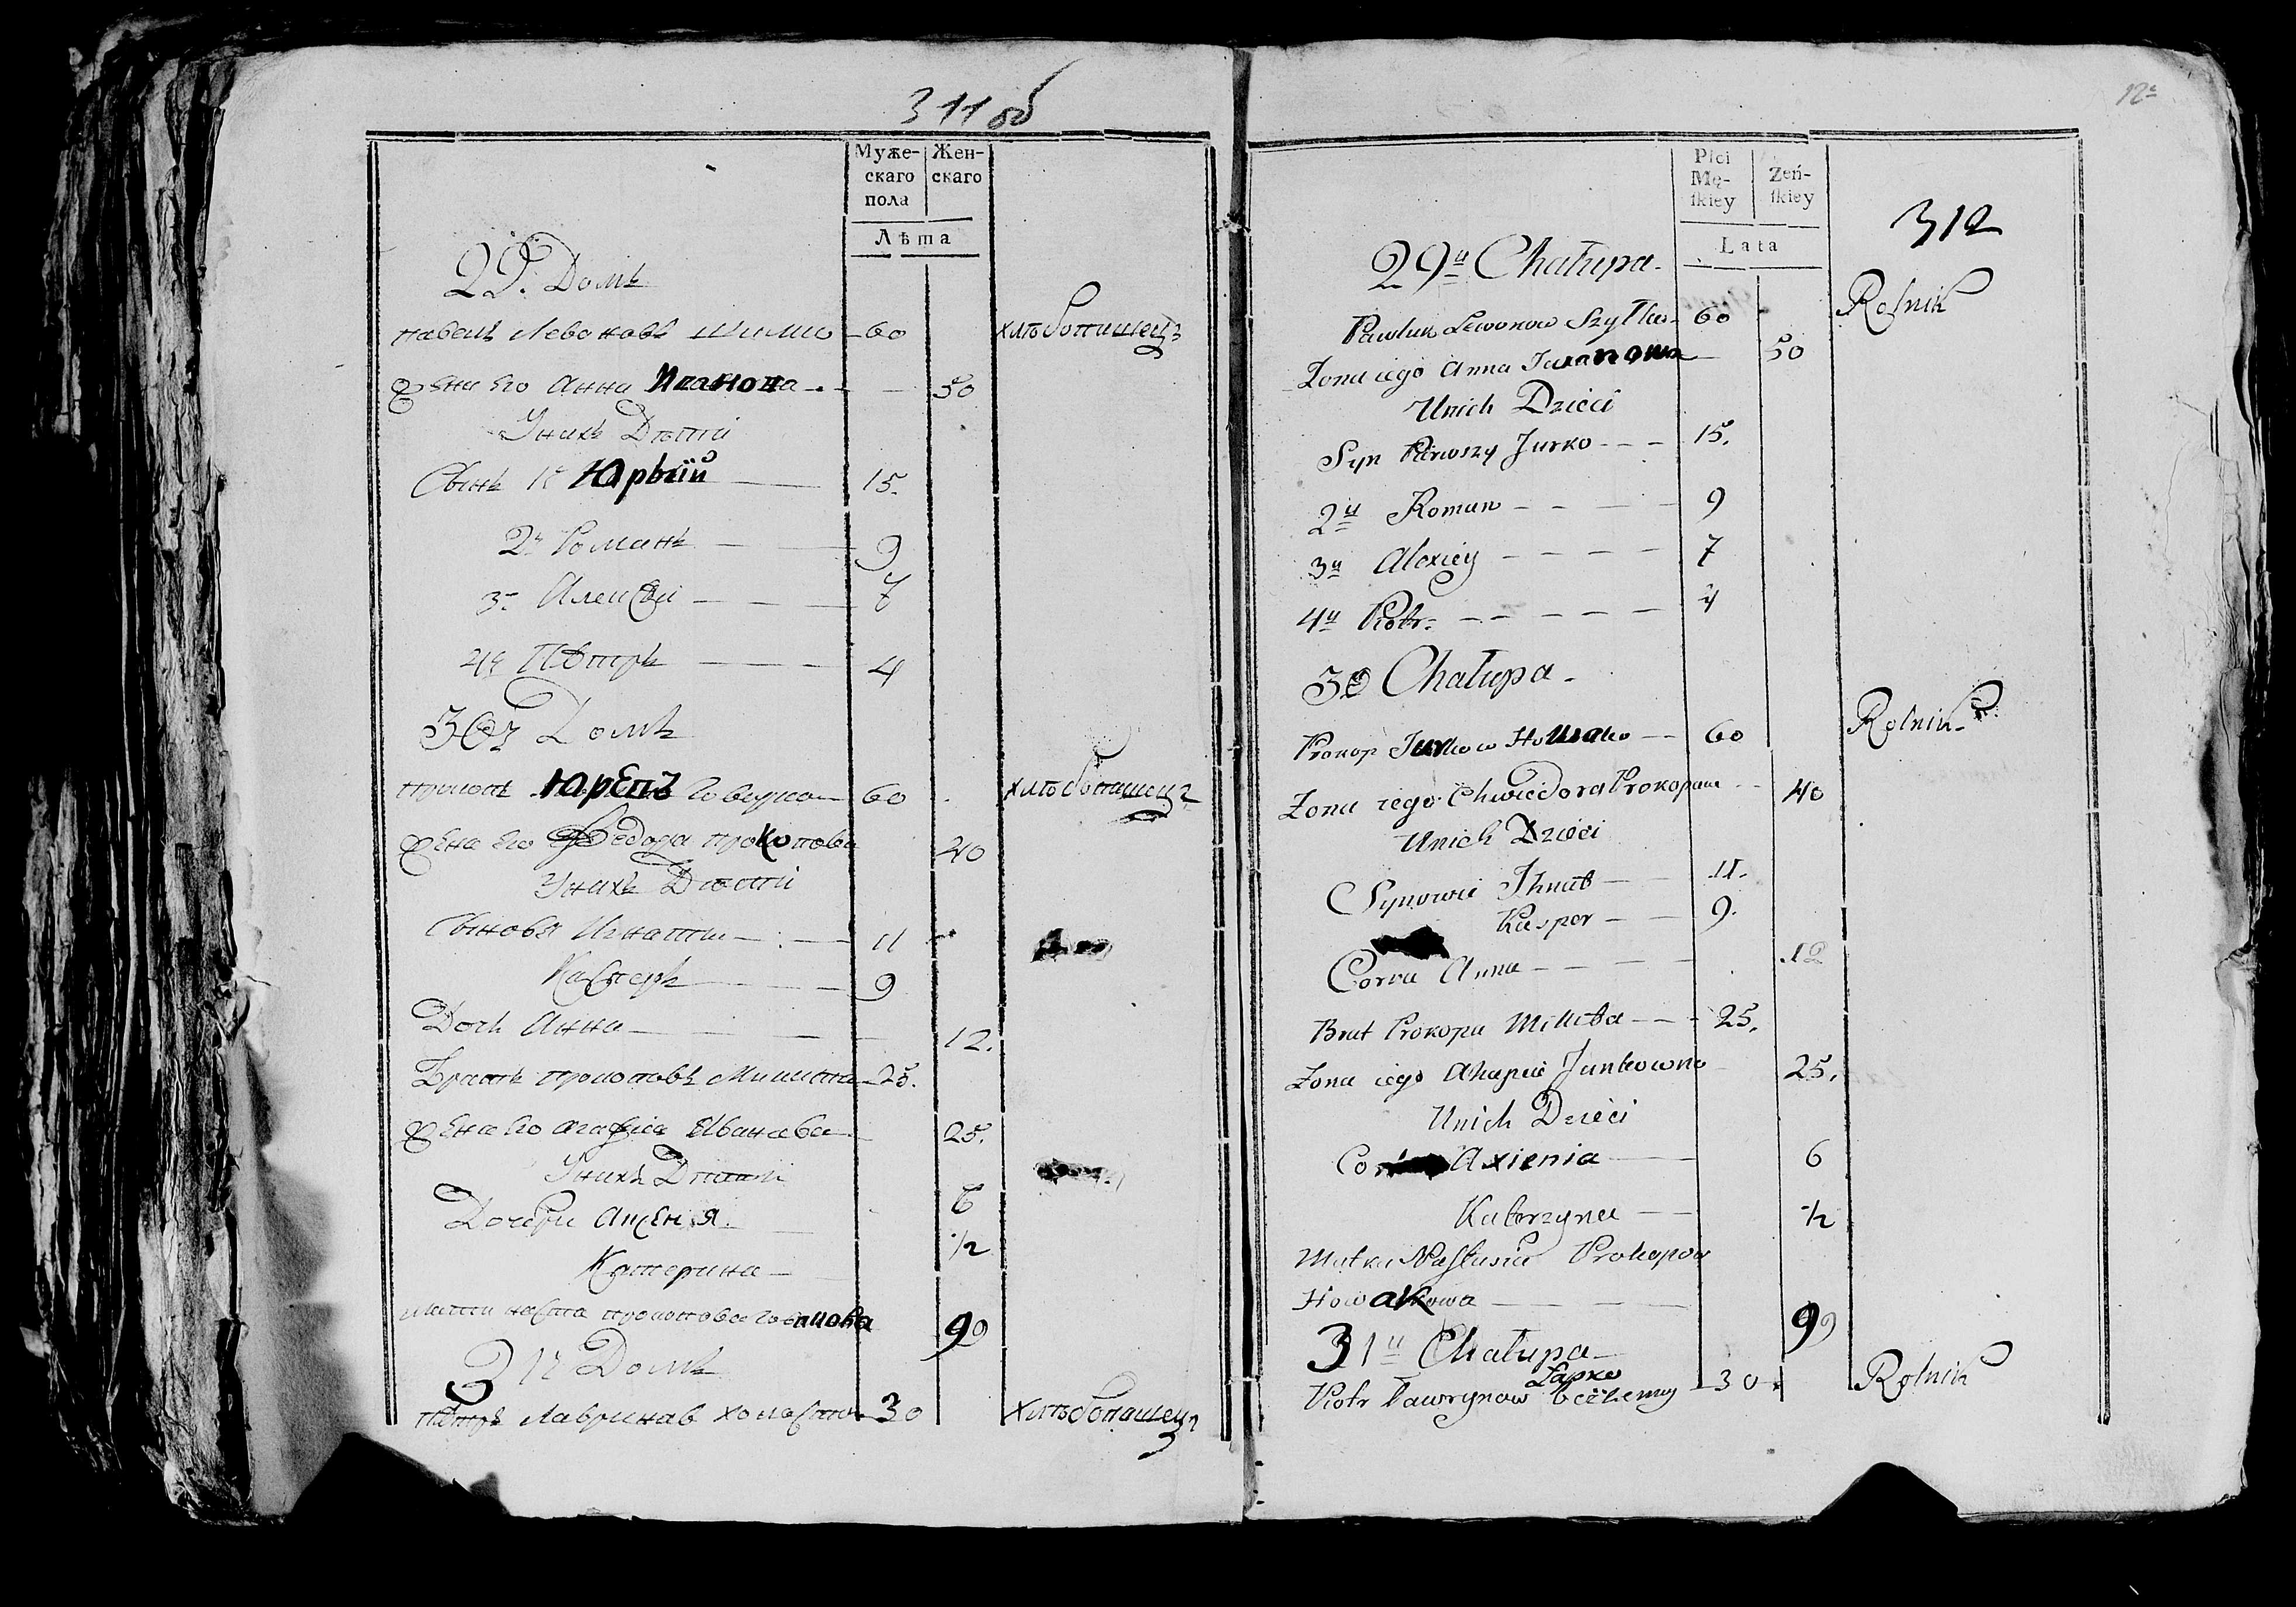 311 об
Муже-
скаго
пола
Жен-
скаго
Лѣта
29. Домъ
Павелъ Левоновъ Шило 60 хлѣбопашецъ
Жена Его Анна Иванова 50
Унихъ Дѣти
Сынъ 1й Юрьий 15.
2й Романъ 9
3й Алексѣй 7
4й Пётръ 4
30й Домъ
Прокопъ Юревъ 60 хлѣбопашецъ
Жена Его Федора Прокопова 40
Унихъ Дѣти
Сыновья Игнатий 11
Касперъ 9
Дочь Анна 12.
Братъ Прокоповъ Микита 25.
Жена Его Агафия Иванова 25.
Унихъ Дѣти
Дочери Аксения 6
Катерина 1/2
Мати Наста Прокопова 90
31й Домъ
Пётръ Лавринав 30 хлѣбопашецъ
12
312
Płci
Mę-
ſkiey
Zeń-
ſkiey
Lata
29ta Chałupa
Pawluk Lewonow Szyłło 60 Rolnik
Zona iego Anna Iwanowa 50
Unich Dzieci
Syn Pierwszy Jurko 15.
2y Roman 9
3y Alexiey 7
4y Piotr 4
30 Chałupa
Prokop Jurkow 60 Rolnik
Zona iego Chwiedora Prokopowa 40
Unich Dzieci
Synowie Ihnat 11.
Kasper 9.
Corka Anna 12
Brat Prokopa Mikita 25.
Zona iego Ahapia Jankowna 25.
Unich Dzieci
Corki Axienia 6
Katerzyna 1/2
Matka Nastusia Prokopow
Howakowa 99
31a Chałupa
Łapko
Piotr Ławrynow 30 Rolnik